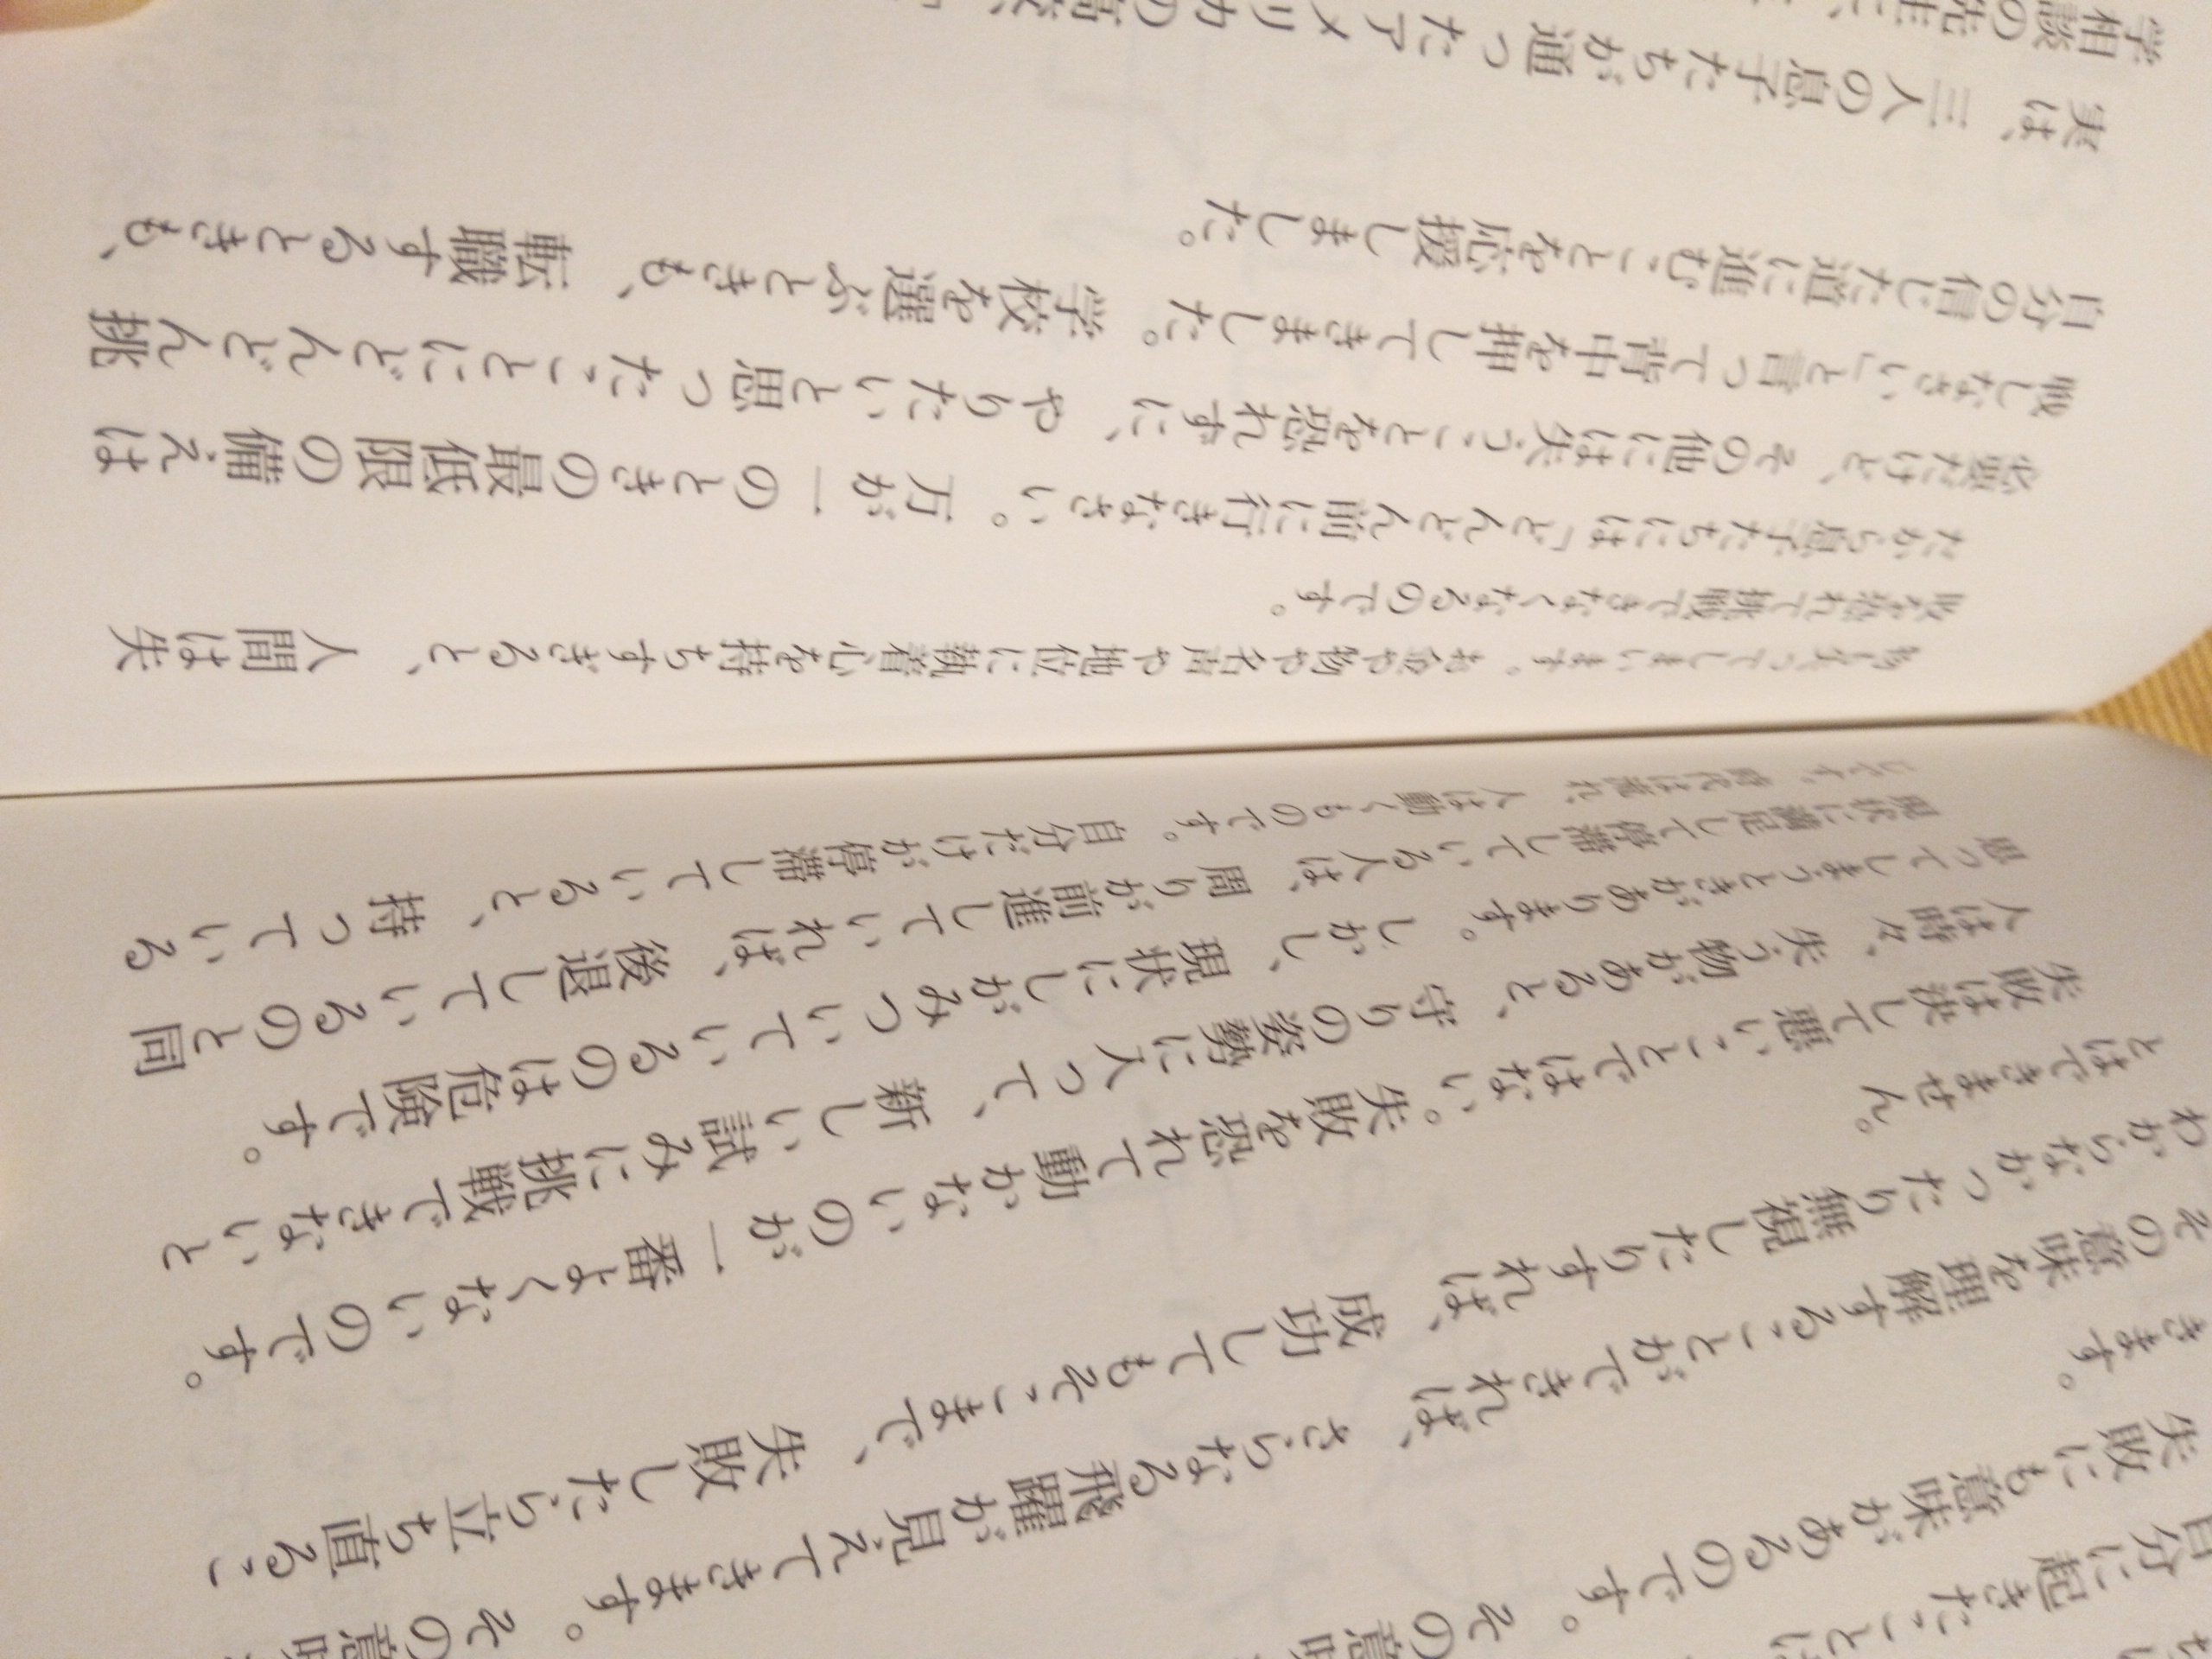 自分に起きたことは
失敗にも意味があるのです。その意味
きます。
その意味を理解することができれば、さらなる飛躍が見えてきます。その意味
わからなかったり無視したりすれば、成功してもそこまで、失敗したら立ち直るこ
とはできません。
失敗は決して悪いことではない。失敗を恐れて動かないのが一番よくないのです。
人は時々、失う物があると、守りの姿勢に入って、新しい試みに挑戦できないと
思ってしまうときがあります。しかし、現状にしがみついているのは危険です。
現状に満足して停滞している人は、周りが前進していれば、後退しているのと同
じです。時代は流れ、人は動くものです。自分だけが停滞していると、持っている
物も失ってしまいます。お金や物や名声や地位に執着心を持ちすぎると、人間は失
敗を恐れて挑戦できなくなるのです。
だから息子たちには「どんどん前に行きなさい。万が一のときの最低限の備えは
必要だけど、その他には失うことを恐れずに、やりたいと思ったことにどんどん挑
戦しなさい」と言って背中を押してきました。学校を選ぶときも、転職するときも、
自分の信じた道に進むことを応援しました。
実は、三人の息子たちが通ったアメリカの高校
学相談の先生